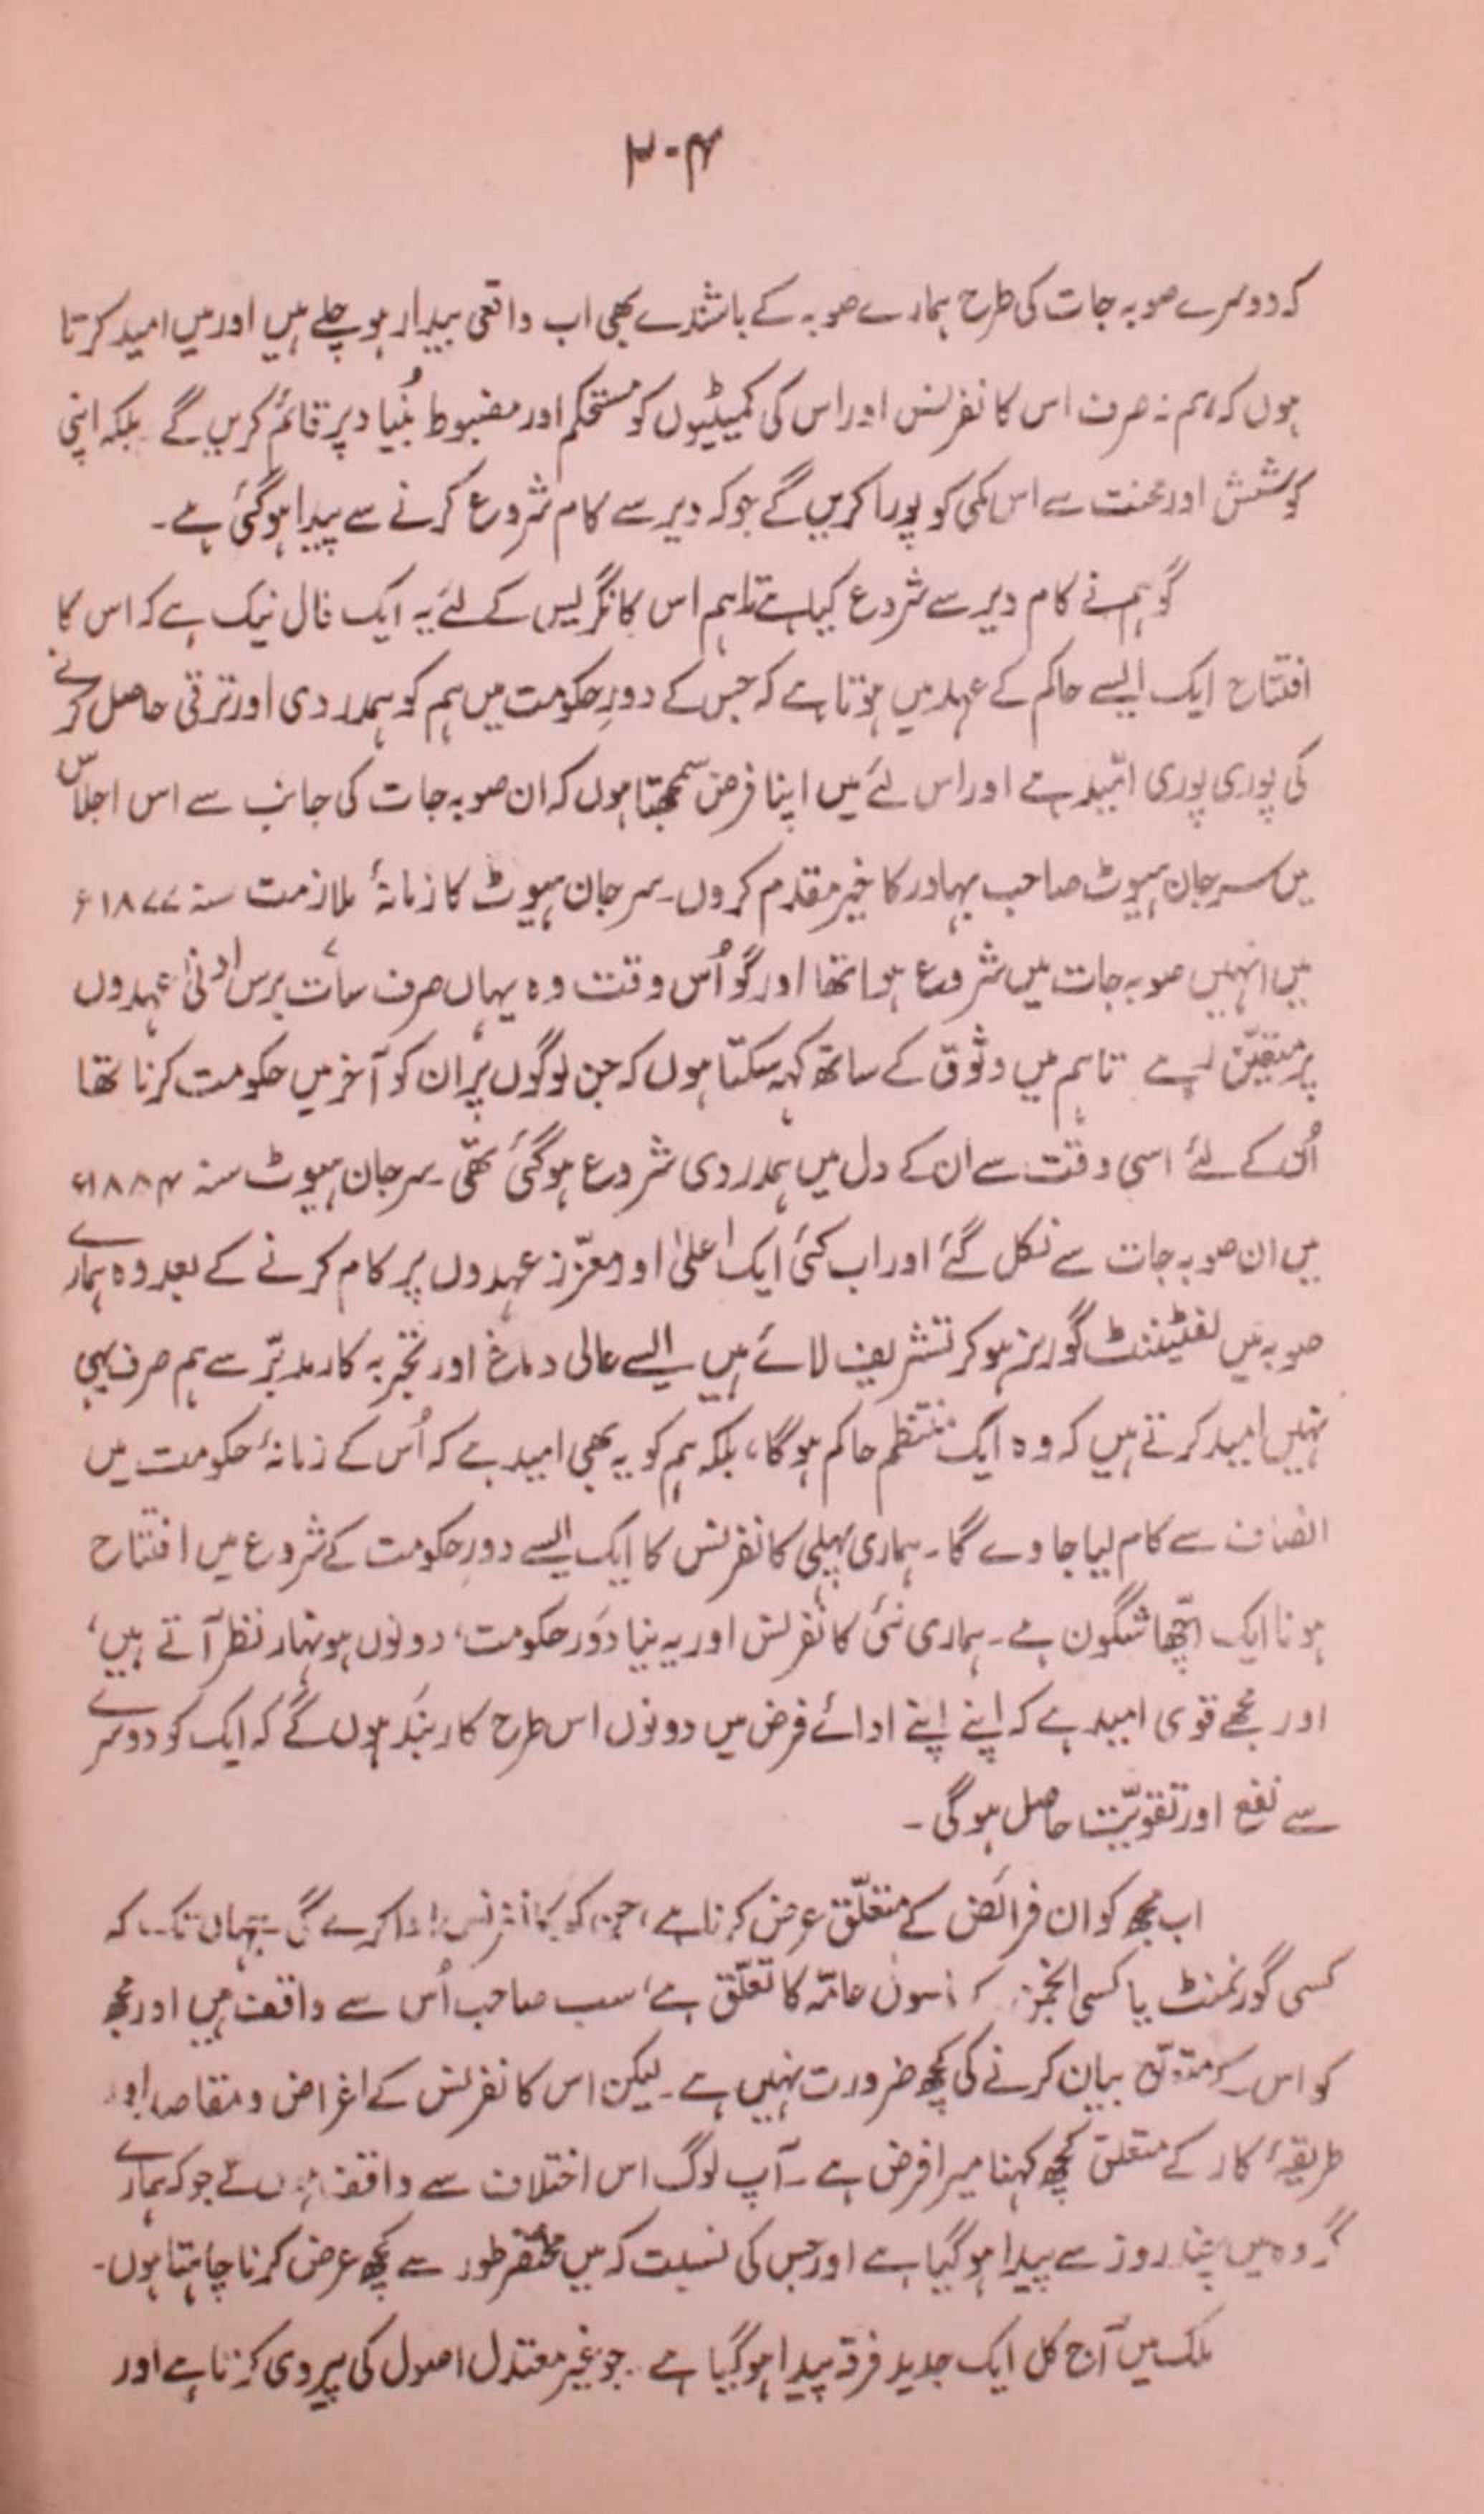 ۳۰۴
کہ دوسرے صوبہ جات کی طرح ہمارے صوبہ کے باشندے بھی اب واقعی بیدار ہو چلے ہیں اور میں امید کرتا
ہوں کہ ہم نہ صرف اس کانفرنس اور اس کی کمیٹیوں کو مستحکم اور مضبوط بُنیاد پر قائم کریں گے بلکہ اپنی
کوشش اور محنت سے اس کمی کو پورا کریں گے جو کہ دیر سے کام شروع کرنے سے پیدا ہو گئی ہے۔
گو ہم نے کام دیر سے شروع کیا ہے تاہم اس کانگریس کے لئے یہ ایک فال نیک ہے کہ اس کا
افتتاح ایک ایسے حاکم کے عہد میں ہوتا ہے کہ جس کے دورِ حکومت میں ہم کو ہمدردی اور ترقی حاصل کرنے
کی پوری پوری امّید ہے اور اس لئے میں اپنا فرض سمجھتا ہوں کہ ان صوبہ جات کی جانب سے اس اجلاس
میں سر جان ہیوٹ صاحب بہادر کا خیر مقدم کروں۔ سر جان ہیوٹ کا زمانۂ ملازمت سنہ ۱۸۷۷ء
میں انہیں صوبہ جات میں شروع ہوا تھا اور گو اُس وقت وہ یہاں صرف سات برس ادنیٰ عہدوں
پر متعیّن رہے تاہم میں وثوق کے ساتھ کہہ سکتا ہوں کہ جن لوگوں پر ان کو آخر میں حکومت کرنا تھا
اُن کے لئے اسی وقت سے ان کے دل میں ہمدردی شروع ہو گئی تھی۔ سر جان ہیوٹ سنہ ۱۸۸۴ء
میں ان صوبہ جات سے نکل گئے اور اب کئی ایک اعلیٰ اور معزّز عہدوں پر کام کرنے کے بعد وہ ہمارے
صوبہ میں لفٹیننٹ گورنر ہو کر تشریف لائے ہیں ایسے عالی دماغ اور تجربہ کار مدبّر سے ہم صرف یہی
نہیں امید کرتے ہیں کہ وہ ایک منتظم حاکم ہوگا، بلکہ ہم کو یہ بھی امید ہے کہ اُس کے زمانۂ حکومت میں
انصاف سے کام لیا جاوے گا۔ ہماری پہلی کانفرنس کا ایک ایسے دورِ حکومت کے شروع میں افتتاح
ہونا ایک اچّھا شگون ہے۔ ہماری نئی کانفرنس اور یہ نیا دَور حکومت، دونوں ہونہار نظر آتے ہیں،
اور مجھے قوی امید ہے کہ اپنے اپنے ادائے فرض میں دونوں اس طرح کاربند ہوں گے کہ ایک کو دوسرے
سے نفع اور تقویّت حاصل ہوگی۔
اب مجھ کو ان فرائض کے متعلّق عرض کرنا ہے، جن کو یہ کانفرنس ادا کرے گی۔ جہاں تک کہ
کسی گورنمنٹ یا کسی انجمن کے اصول عامّہ کا تعلّق ہے، سب صاحب اُس سے واقف ہیں اور مجھ
کو اس کے متعلق بیان کرنے کی کچھ ضرورت نہیں ہے۔ لیکن اس کانفرنس کے اغراض و مقاصد اور
طریقۂ کار کے متعلق کچھ کہنا میرا فرض ہے۔ آپ لوگ اس اختلاف سے واقف ہوں گے جو کہ ہمارے
گروہ میں چند روز سے پیدا ہو گیا ہے اور جس کی نسبت کہ میں مختصر طور سے کچھ عرض کرنا چاہتا ہوں۔
ملک میں آج کل ایک جدید فرقہ پیدا ہو گیا ہے۔ جو غیر معتدل اصول کی پیروی کرتا ہے اور